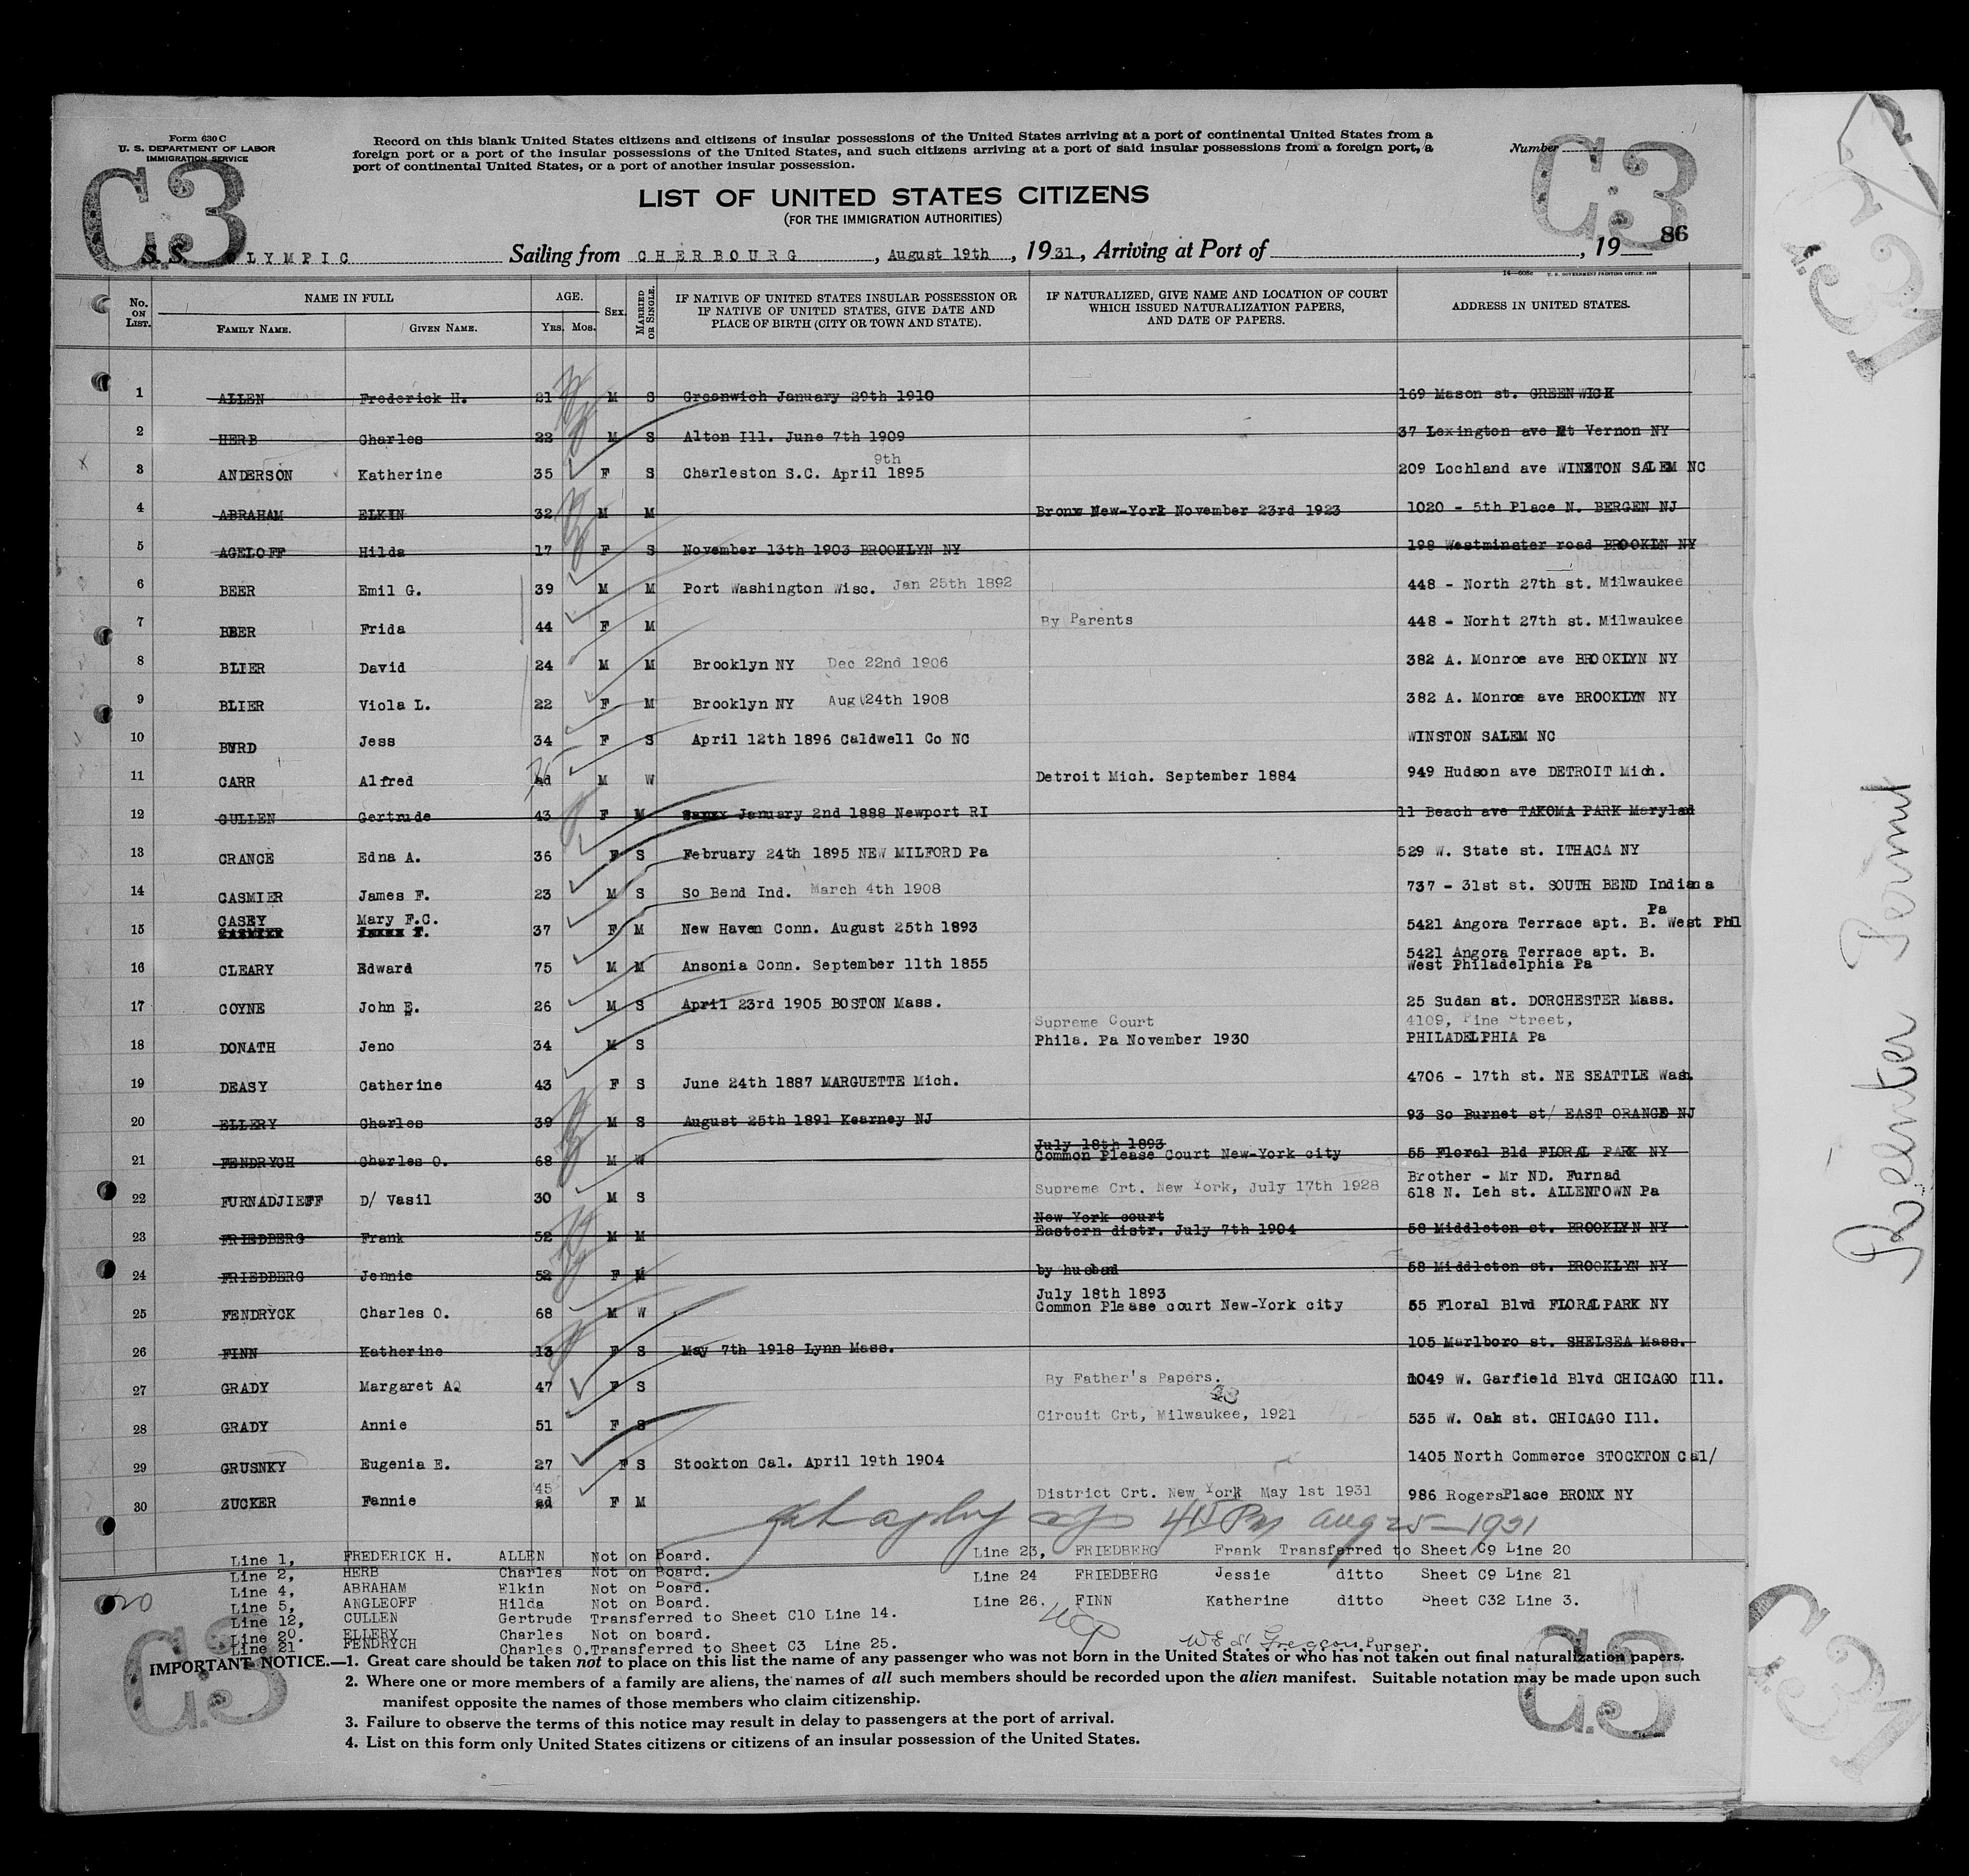 Form 630 C
U. S. DEPARTMENT OF LABOR
IMMIGRATION SERVICE
Record on this blank United States citizens and citizens of insular possessions of the United States arriving at a port of continental United States from a
foreign port or a port of the insular possessions of the United States, and such citizens arriving at a port of said insular possessions from a foreign port, a
port of continental United States, or a port of another insular possession.
Number
C.3
C.3
LIST OF UNITED STATES CITIZENS
(FOR THE IMMIGRATION AUTHORITIES)
86
S.S. OLYMPIC Sailing from CHERBOURG, August 19th, 1931, Arriving at Port of , 19
No. ON LIST. NAME IN FULL AGE. SEX. MARRIED OR SINGLE. IF NATIVE OF UNITED STATES INSULAR POSSESSION OR IF NATIVE OF UNITED STATES, GIVE DATE AND PLACE OF BIRTH (CITY OR TOWN AND STATE). IF NATURALIZED, GIVE NAME AND LOCATION OF COURT WHICH ISSUED NATURALIZATION PAPERS, AND DATE OF PAPERS. ADDRESS IN UNITED STATES.
FAMILY NAME. GIVEN NAME. YRS. MOS.
1 ALLEN Frederick H. 21 M S Greenwich January 29th 1910 169 Mason st. GREENWICH
2 HERB Charles 22 M S Alton Ill. June 7th 1909 37 Lexington ave Mt Vernon NY
3 ANDERSON Katherine 35 F S Charleston S.C. April 9th 1895 209 Lochland ave WINSTON SALEM NC
4 ABRAHAM ELKIN 32 M M Bronx New-York November 23rd 1923 1020 - 5th Place N. BERGEN NJ
5 AGELOFF Hilda 17 F S November 13th 1903 BROOKLYN NY 198 Westminster road BROOKLN NY
6 BEER Emil G. 39 M M Port Washington Wisc. Jan 25th 1892 448 - North 27th st. Milwaukee
7 BEER Frida 44 F M By Parents 448 - Norht 27th st. Milwaukee
8 BLIER David 24 M M Brooklyn NY Dec 22nd 1906 382 A. Monroe ave BROOKLYN NY
9 BLIER Viola L. 22 F M Brooklyn NY Aug 24th 1908 382 A. Monroe ave BROOKLYN NY
10 BYRD Jess 34 F S April 12th 1896 Caldwell Co NC WINSTON SALEM NC
11 CARR Alfred ad M W Detroit Mich. September 1884 949 Hudson ave DETROIT Mich.
12 CULLEN Gertrude 43 F M January 2nd 1888 Newport RI 11 Beach ave TAKOMA PARK Marylad
13 CRANCE Edna A. 36 F S February 24th 1895 NEW MILFORD Pa 529 W. State st. ITHACA NY
14 CASMIER James F. 23 M S So Bend Ind. March 4th 1908 737 - 31st st. SOUTH BEND Indiana
15 CASEY Mary F.C. 37 F M New Haven Conn. August 25th 1893 5421 Angora Terrace apt. B. West Phl Pa
CASMIER James F.
16 CLEARY Edward 75 M M Ansonia Conn. September 11th 1855 5421 Angora Terrace apt. B.
West Philadelphia Pa
17 COYNE John E. 26 M S April 23rd 1905 BOSTON Mass. 25 Sudan st. DORCHESTER Mass.
Supreme Court 4109, Pine Street,
18 DONATH Jeno 34 M S Phila. Pa November 1930 PHILADELPHIA Pa
19 DEASY Catherine 43 F S June 24th 1887 MARGUETTE Mich. 4706 - 17th st. NE SEATTLE Wash.
20 ELLERY Charles 39 M S August 25th 1891 Kearney NJ 93 So Burnet st/ EAST ORANGE NJ
July 18th 1893
21 FENDRYCH Charles O. 68 M W Common Please Court New-York city 55 Floral Bld FLORAL PARK NY
Brother - Mr ND. Furnad
22 FURNADJIEFF D/ Vasil 30 M S Supreme Crt. New York, July 17th 1928 618 N. Leh st. ALLENTOWN Pa
New-York court
23 FRIEDBERG Frank 52 M M Eastern distr. July 7th 1904 58 Middleton st. BROOKLYN NY
24 FRIEDBERG Jennie 52 F M by husbad 58 Middleton st. BROOKLYN NY
July 18th 1893
25 FENDRYCK Charles O. 68 M W Common Please court New-York city 55 Floral Blvd FLORALPARK NY
26 FINN Katherine 13 F S May 7th 1918 Lynn Mass. 105 Marlboro st. SHELSEA Mass.
27 GRADY Margaret A. 47 F S By Father's Papers. 1049 W. Garfield Blvd CHICAGO Ill.
28 GRADY Annie 51 F S Circuit Crt, Milwaukee, 1921 535 W. Oak st. CHICAGO Ill.
29 GRUSNKY Eugenia E. 27 F S Stockton Cal. April 19th 1904 1405 North Commerce STOCKTON Cal/
45
30 ZUCKER Fannie ad F M District Crt. New York May 1st 1931 986 RogersPlace BRONX NY
Aug 25 - 1931
Line 1, FREDERICK H. ALLEN Not on Board.
Line 2, HERB Charles Not on Board.
Line 4, ABRAHAM Elkin Not on Board.
Line 5, ANGLEOFF Hilda Not on Board.
Line 12, CULLEN Gertrude Transferred to Sheet C10 Line 14.
Line 20. ELLERY Charles Not on board.
Line 21 FENDRYCH Charles O.Transferred to Sheet C3 Line 25.
Line 23, FRIEDBERG Frank Transferred to Sheet C9 Line 20
Line 24 FRIEDBERG Jessie ditto Sheet C9 Line 21
Line 26. FINN Katherine ditto Sheet C32 Line 3.
Purser.
IMPORTANT NOTICE.—1. Great care should be taken not to place on this list the name of any passenger who was not born in the United States or who has not taken out final naturalization papers.
2. Where one or more members of a family are aliens, the names of all such members should be recorded upon the alien manifest. Suitable notation may be made upon such
manifest opposite the names of those members who claim citizenship.
3. Failure to observe the terms of this notice may result in delay to passengers at the port of arrival.
4. List on this form only United States citizens or citizens of an insular possession of the United States.
C.3
C.3
Reënter Permit